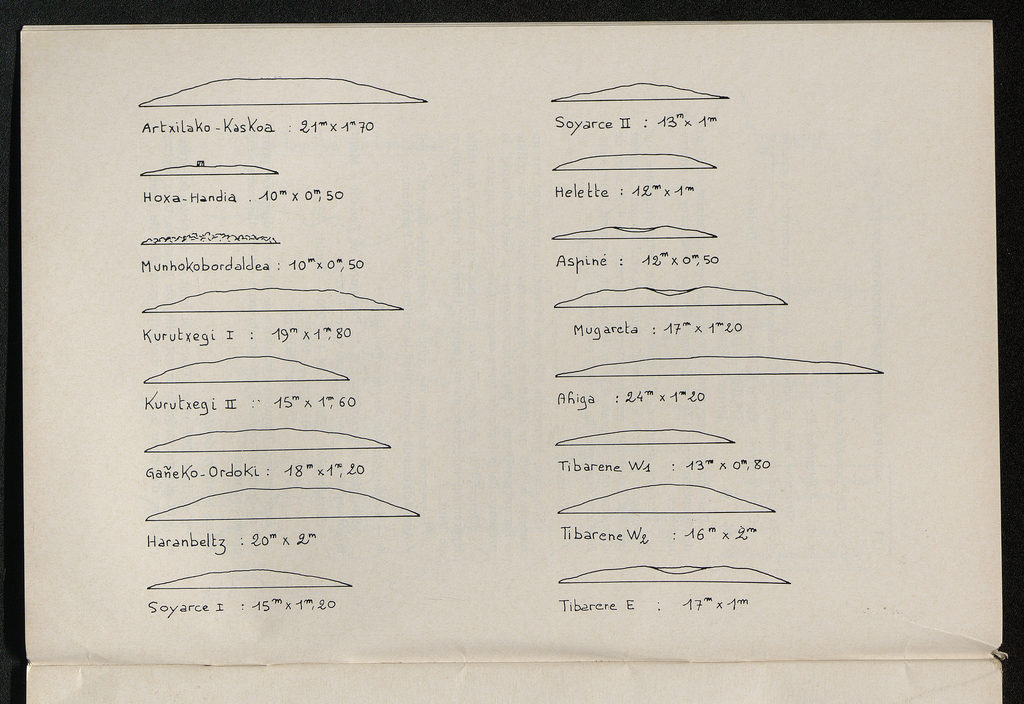 Artxilako-Kaskoa : 21m x 1m70
Hoxa-Handia . 10m x 0m,50
Munhokobordaldea : 10m x 0m,50
Kurutxegi I : 19m x 1m,80
Kurutxegi II : 15m x 1m,60
Gañeko-Ordoki : 18m x 1m,20
Haranbeltz : 20m x 2m
Soyarce I : 15m x 1m,20
Soyarce II : 13m x 1m
Helette : 12m x 1m
Aspiné : 12m x 0m,50
Mugareta : 17m x 1m20
Ahiga : 24m x 1m20
Tibarene W1 : 13m x 0m,80
Tibarene W2 : 16m x 2m
Tibarene E : 17m x 1m